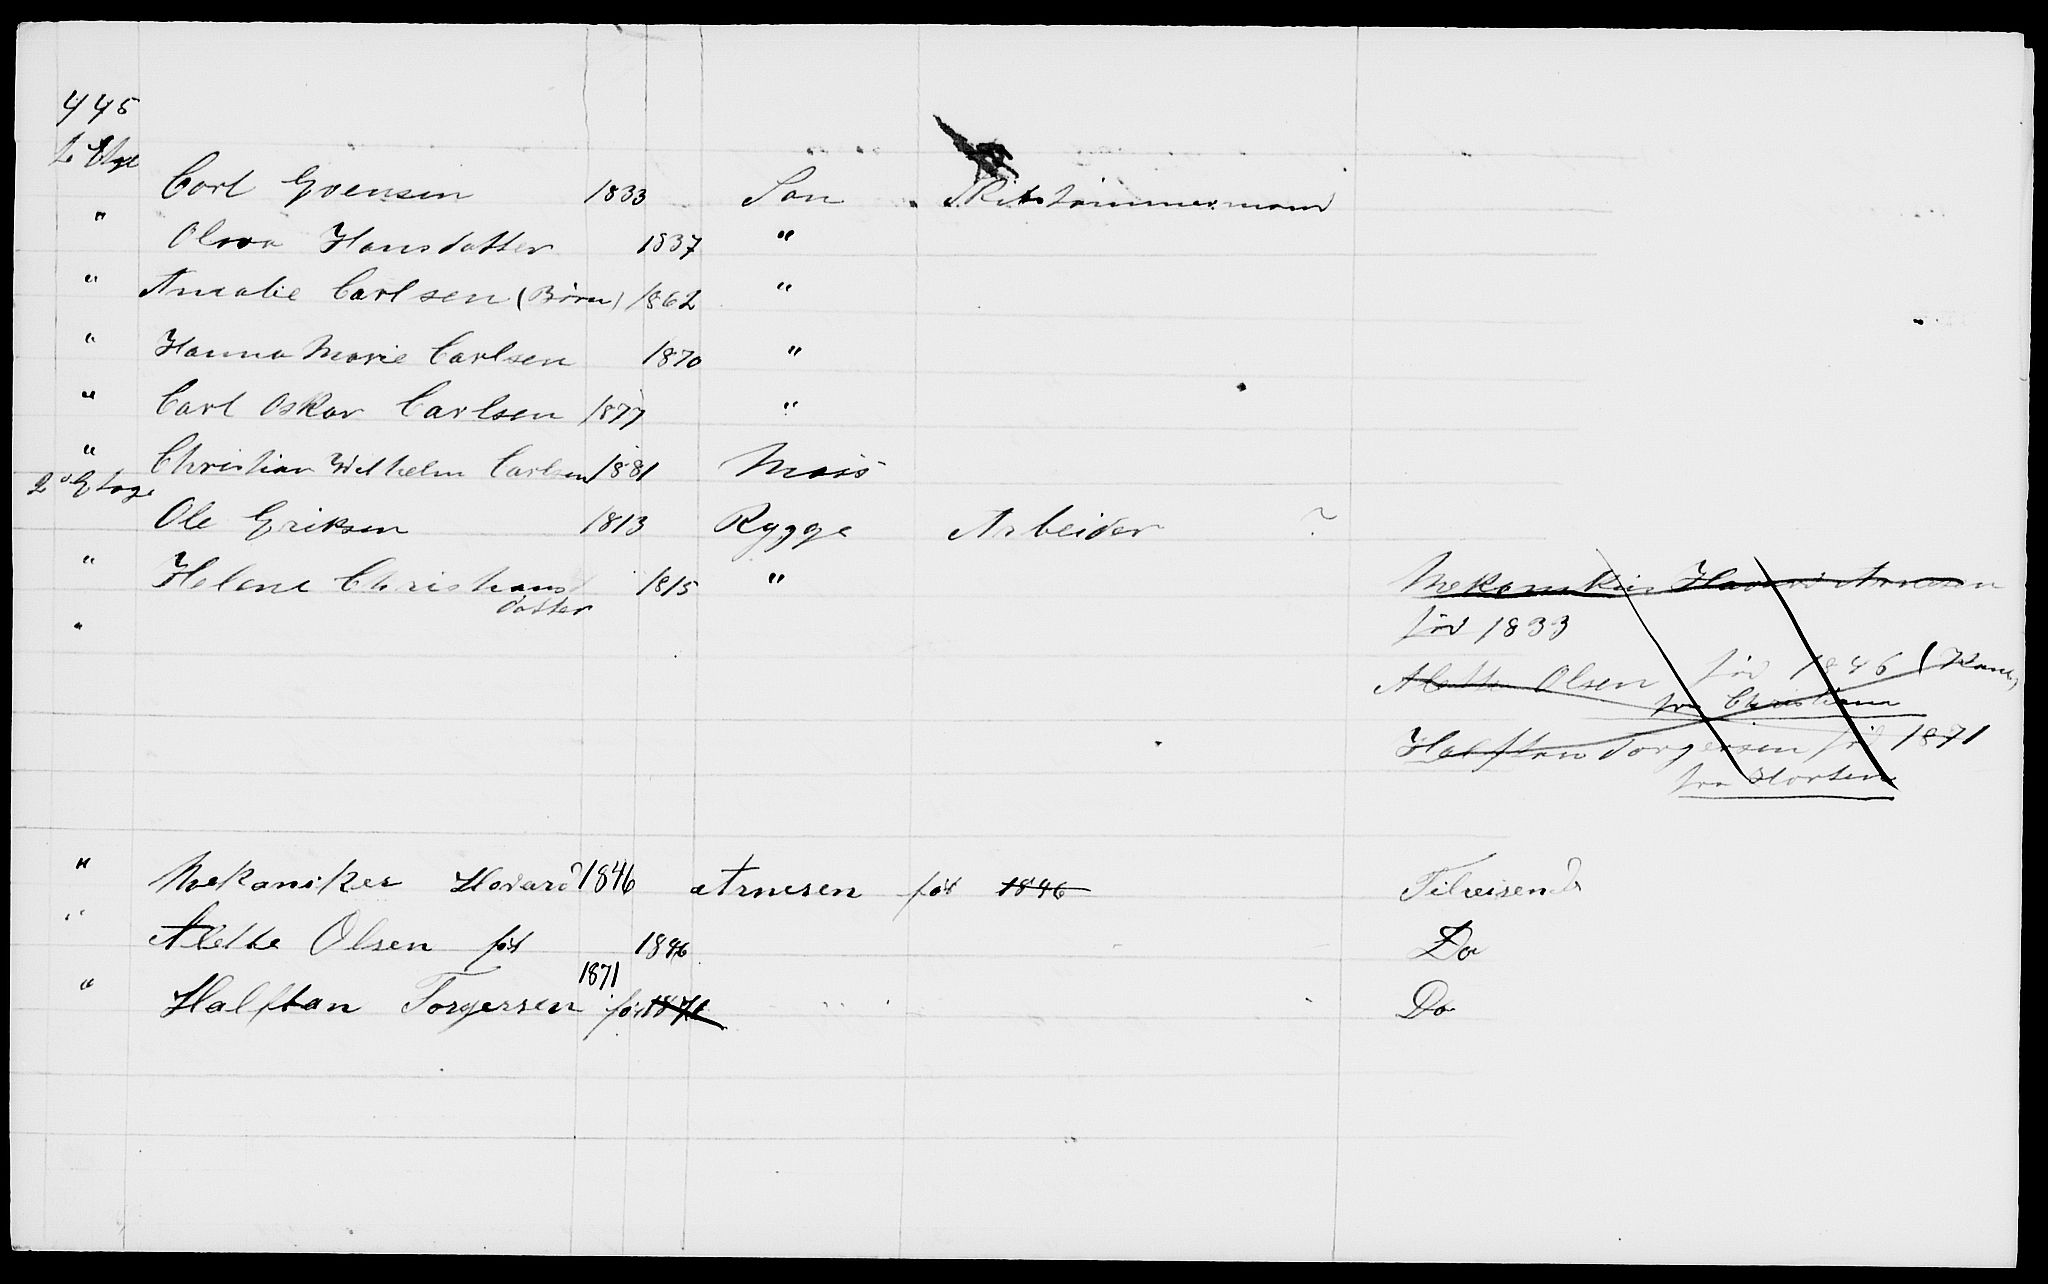 445
1 Etge
Carl Evensen 1833 Son Skibstømmermand
" Olava Hansdatter 1837 "
" Amalie Carlsen (Børn) 1862 "
" Hanna Marie Carlsen 1870 "
" Carl Oskar Carlsen 1877 "
" Christian Wilhelm Carlsen 1881 Moss
2d Etage
Ole Eriksen 1813 Rygge Arbeider ?
" Helene Christians datter 1815 "
"
Mekaniker Havard Arnesen
fød 1833
Alette Olsen fød 1846 (Kone)
fra Christiania
Halftan Torgersen fød 1871
fra Horten
" Mekaniker Hovard 1846 Arnesen fød 1846 Tilreisende
" Alette Olsen fød 1846 Do
1871
" Halftan Torgersen fød 1871 Do